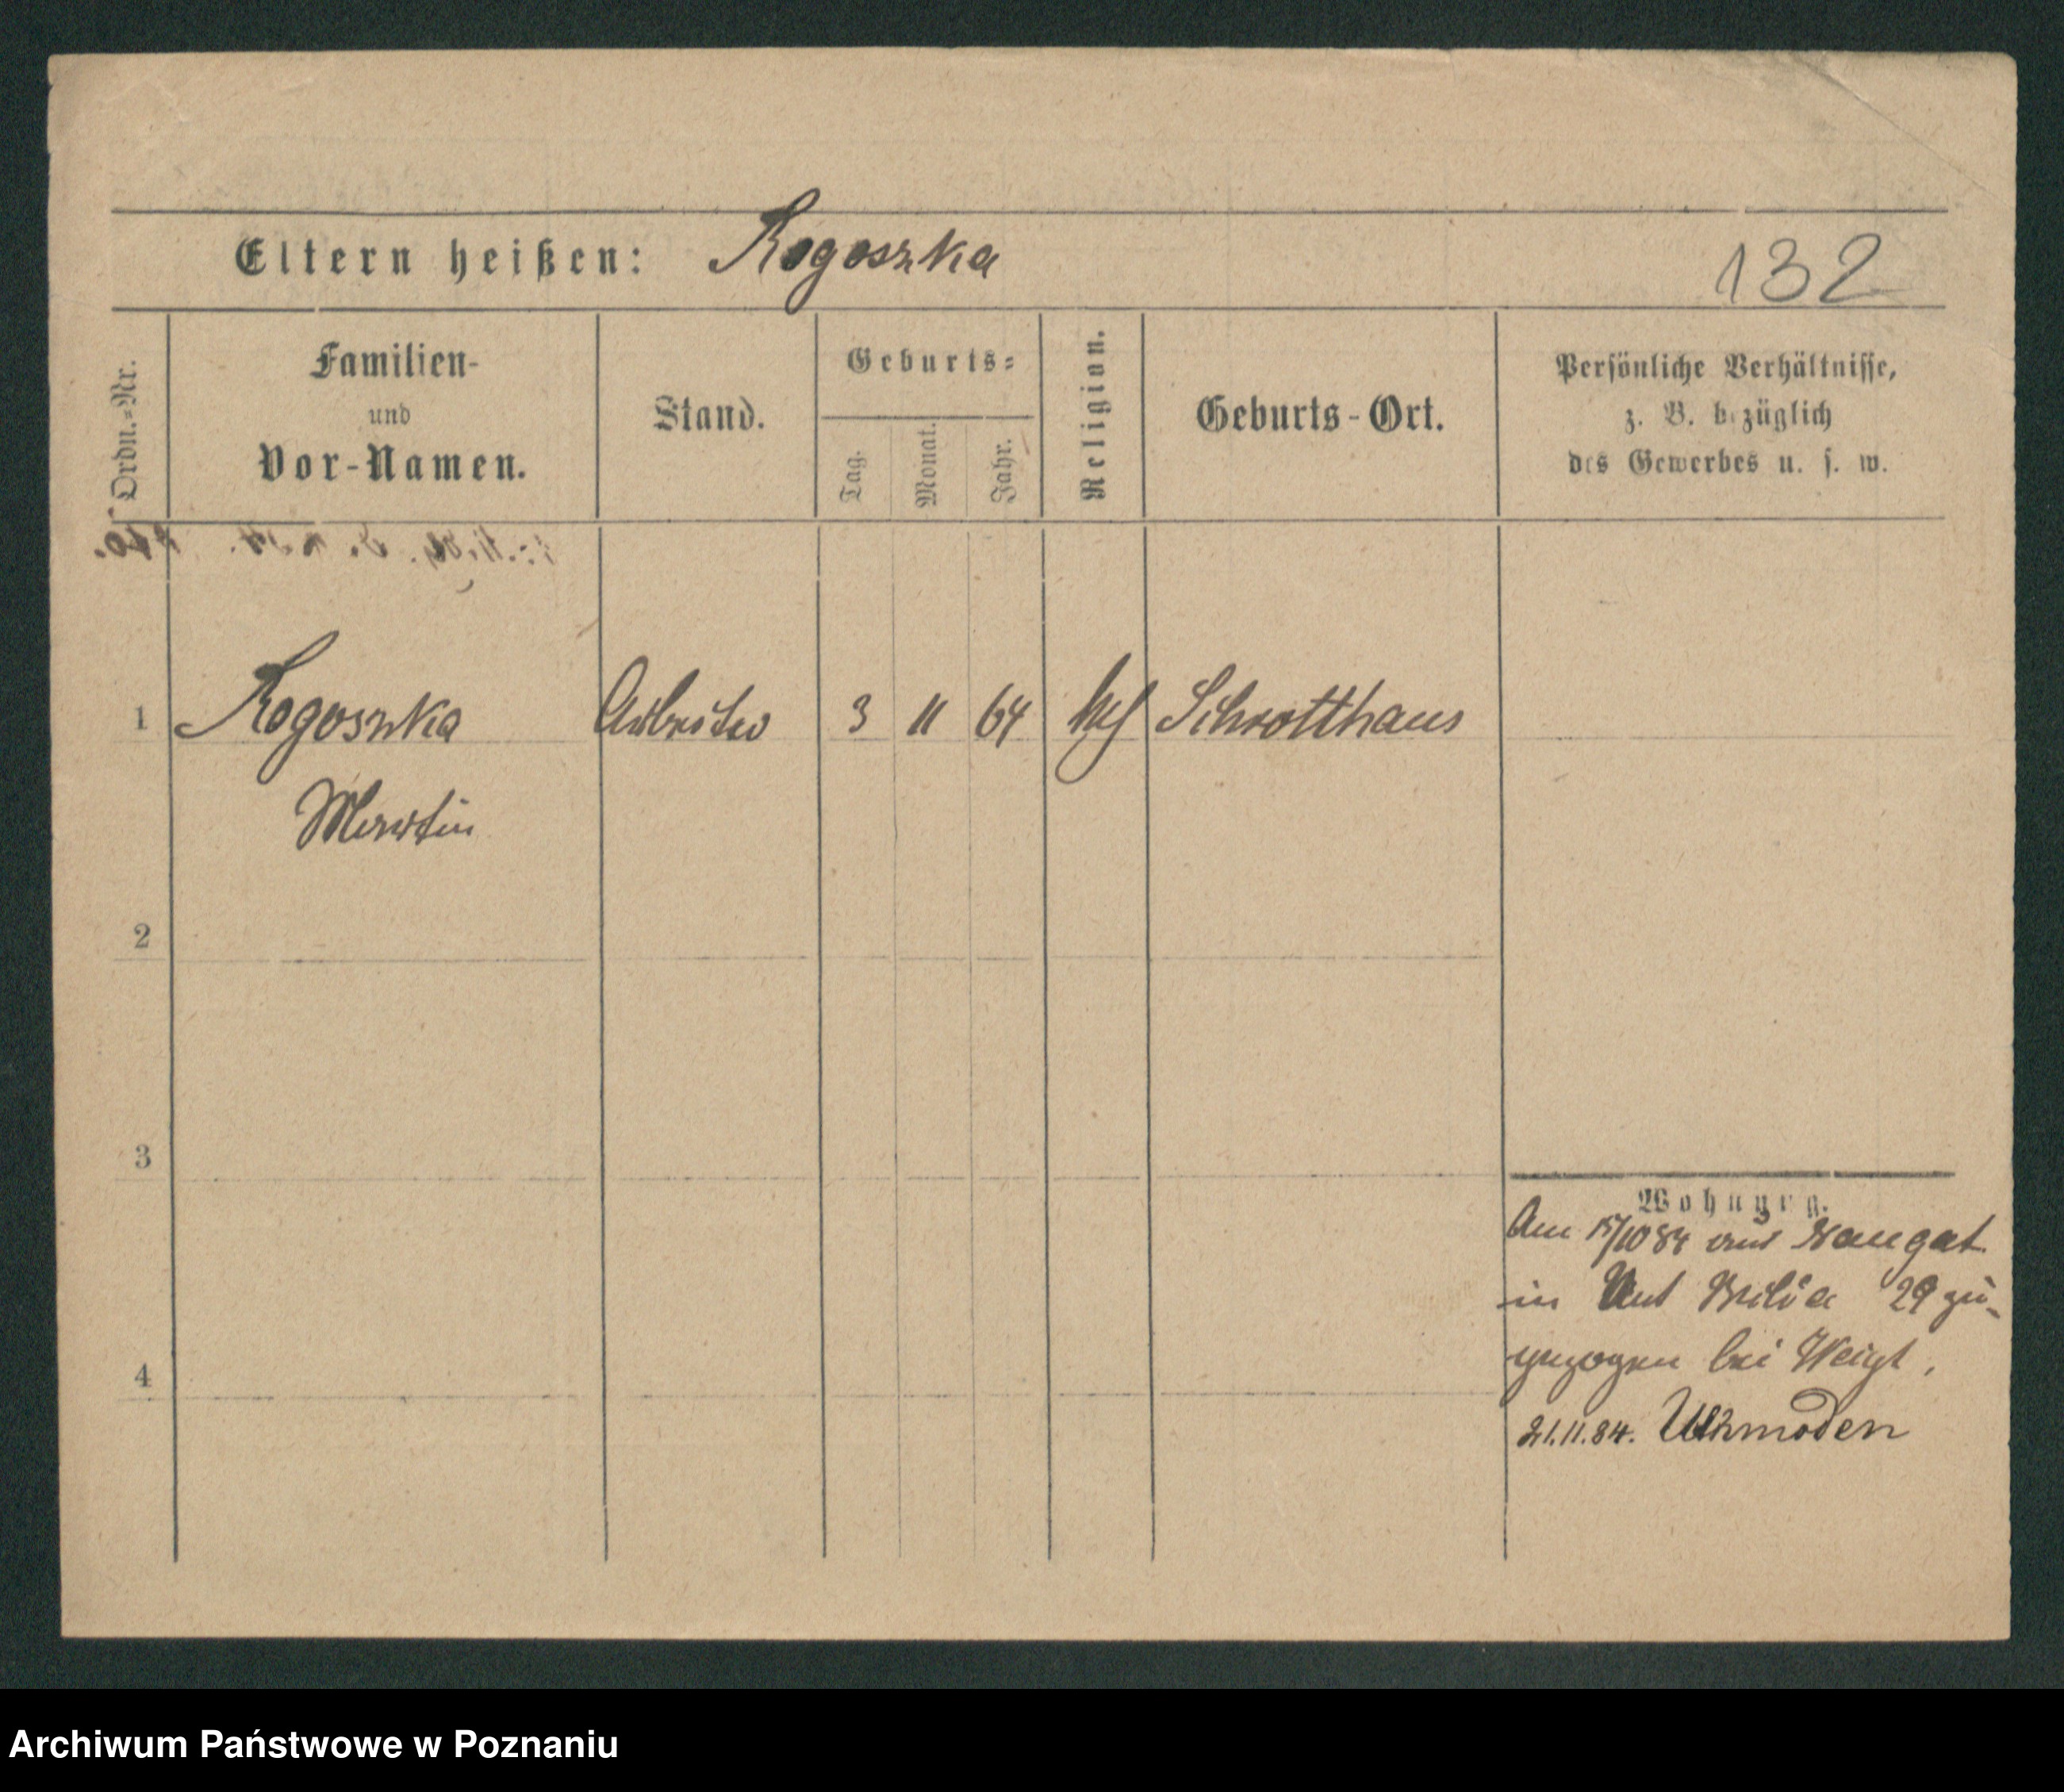 Eltern heißen: Rogoszka 132
Ordn.-Nr.
Familien-
und
Vor-Namen.
Stand.
Geburts-
Tag.
Monat.
Jahr.
Religion.
Geburts-Ort.
Persönliche Verhältnisse,
z. B. bezüglich
des Gewerbes u. s. w.
1 Rogoszka Arbeiter 3 11 64 kath Schrotthaus
Martin
2
3
Wohnung.
Am 15/10 84 aus
in Unt Wilda 29 zu-
gezogen bei Weigt.
4
21.11.84.
Archiwum Państwowe w Poznaniu